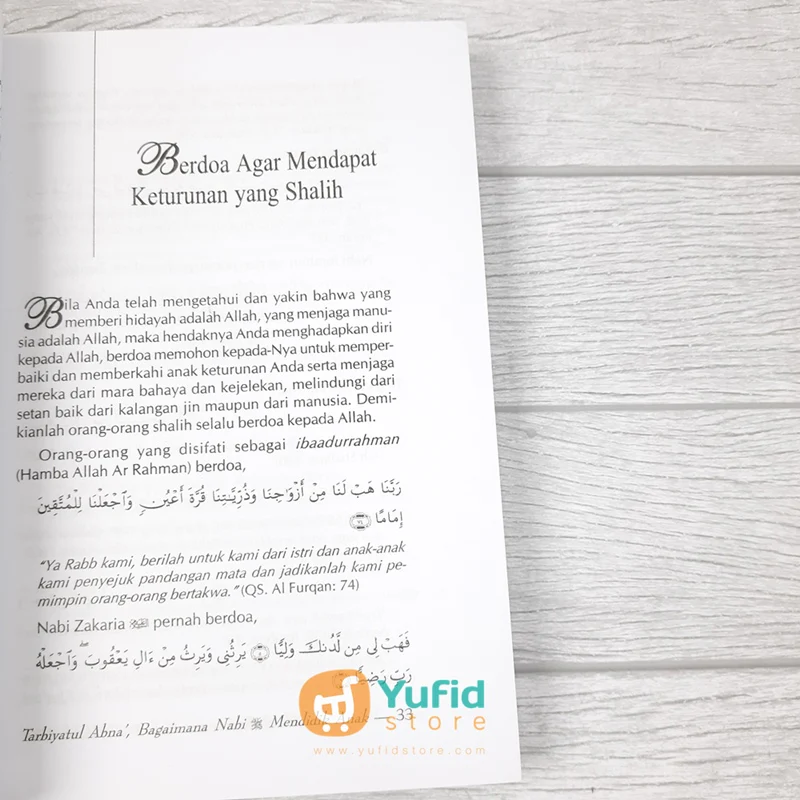 Berdoa Agar Mendapat
Keturunan yang Shalih
Bila Anda telah mengetahui dan yakin bahwa yang
memberi hidayah adalah Allah, yang menjaga manu-
sia adalah Allah, maka hendaknya Anda menghadapkan diri
kepada Allah, berdoa memohon kepada-Nya untuk memper-
baiki dan memberkahi anak keturunan Anda serta menjaga
mereka dari mara bahaya dan kejelekan, melindungi dari
setan baik dari kalangan jin maupun dari manusia. Demi-
kianlah orang-orang shalih selalu berdoa kepada Allah.
Orang-orang yang disifati sebagai ibaadurrahman
(Hamba Allah Ar Rahman) berdoa,
رَبَّنَا هَبْ لَنَا مِنْ أَزْوَاجِنَا وَذُرِّيَّاتِنَا قُرَّةَ أَعْيُنٍ وَٱجْعَلْنَا لِلْمُتَّقِينَ
إِمَامًا
"Ya Rabb kami, berilah untuk kami dari istri dan anak-anak
kami penyejuk pandangan mata dan jadikanlah kami pe-
mimpin orang-orang bertakwa." (QS. Al Furqan: 74)
Nabi Zakaria pernah berdoa,
فَهَبْ لِى مِن لَّدُنكَ وَلِيًّا يَرِثُنِى وَيَرِثُ مِنْ ءَالِ يَعْقُوبَ ۖ وَٱجْعَلْهُ
رَبِّ رَضِيًّا
Yufid
store
Tarbiyatul Abna', Bagaimana Nabi ﷺ Mendidik Anak — 33
www.yufidstore.com